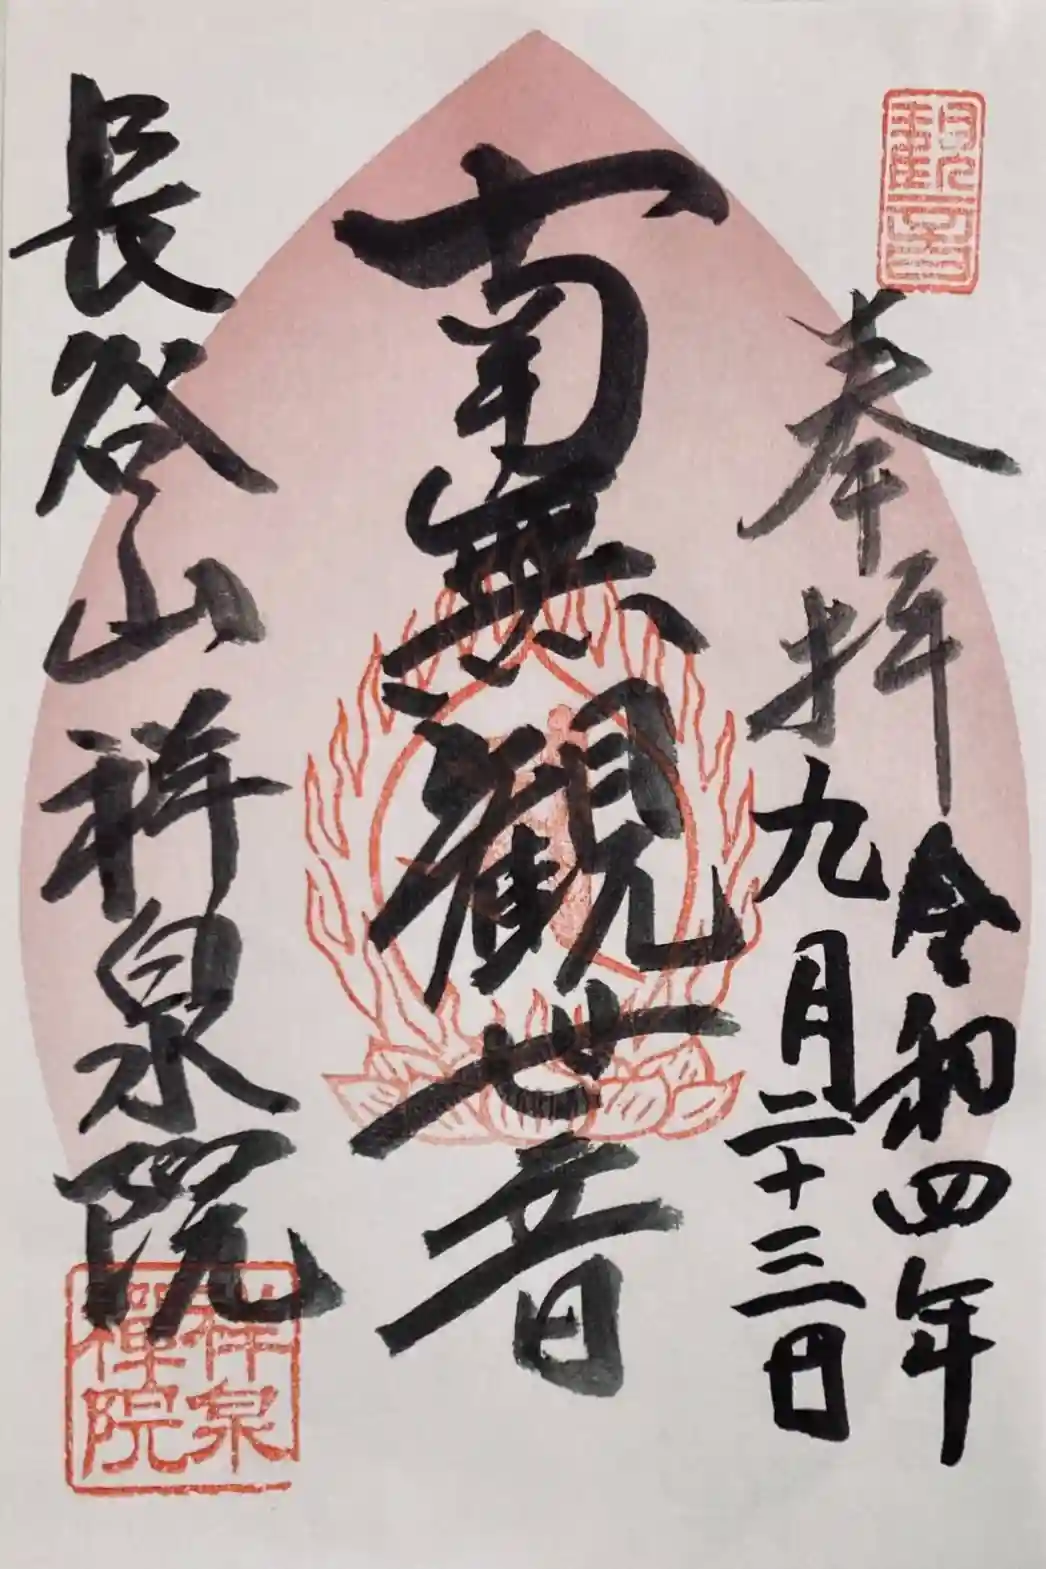 観音
奉拝
令和四年
九月二十三日
南無観世音
長谷山祥泉院
祥泉
禅院